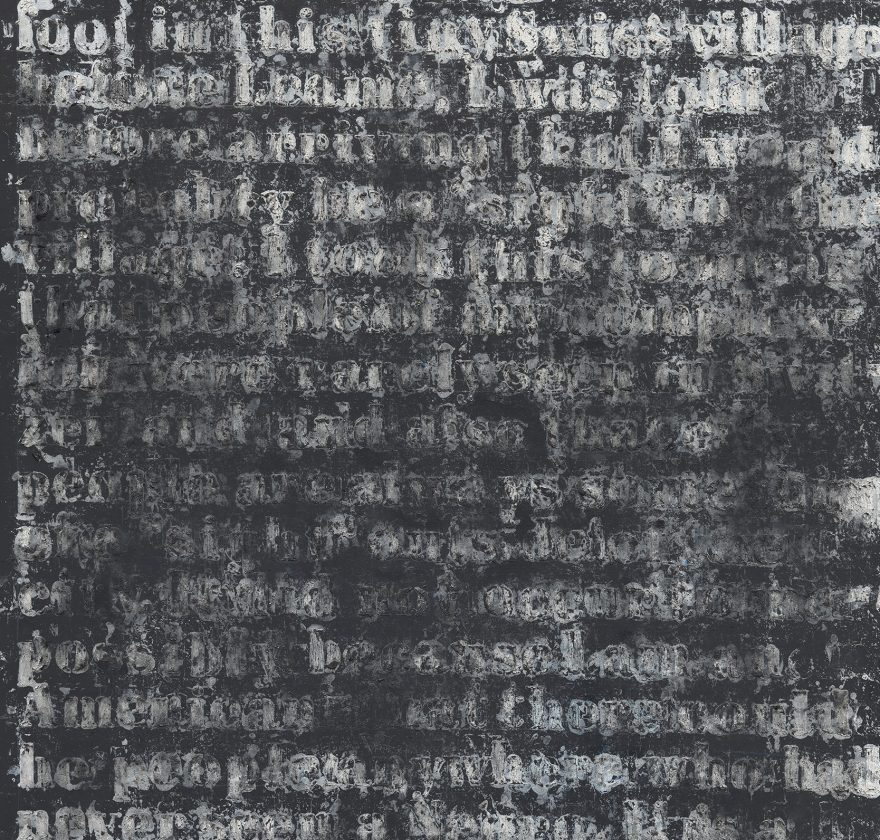 foot in this tiny Swiss village
before I came. I was told
before arriving that I would
probably be a "sight" for the
village; I took this to mean
that people of my complex-
ion were rarely seen in Swit-
zerland, and also
people are always
outside of the
city. It did not occur to me
possibly because I am an
American that there could
be people anywhere who had
never seen a Negro. It is a